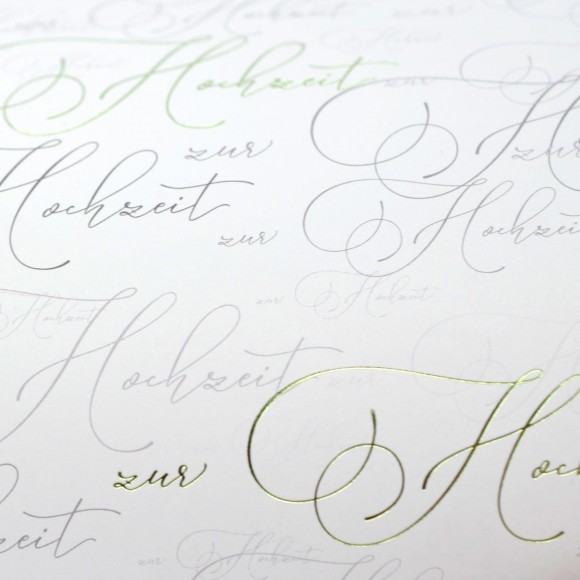 Hochzeit zur
zur zur
Hochzeit
zur Hochzeit
zur Hochzeit
Hochzeit
Hochzeit zur
zur Hoc
zeit
zur Hochzeit